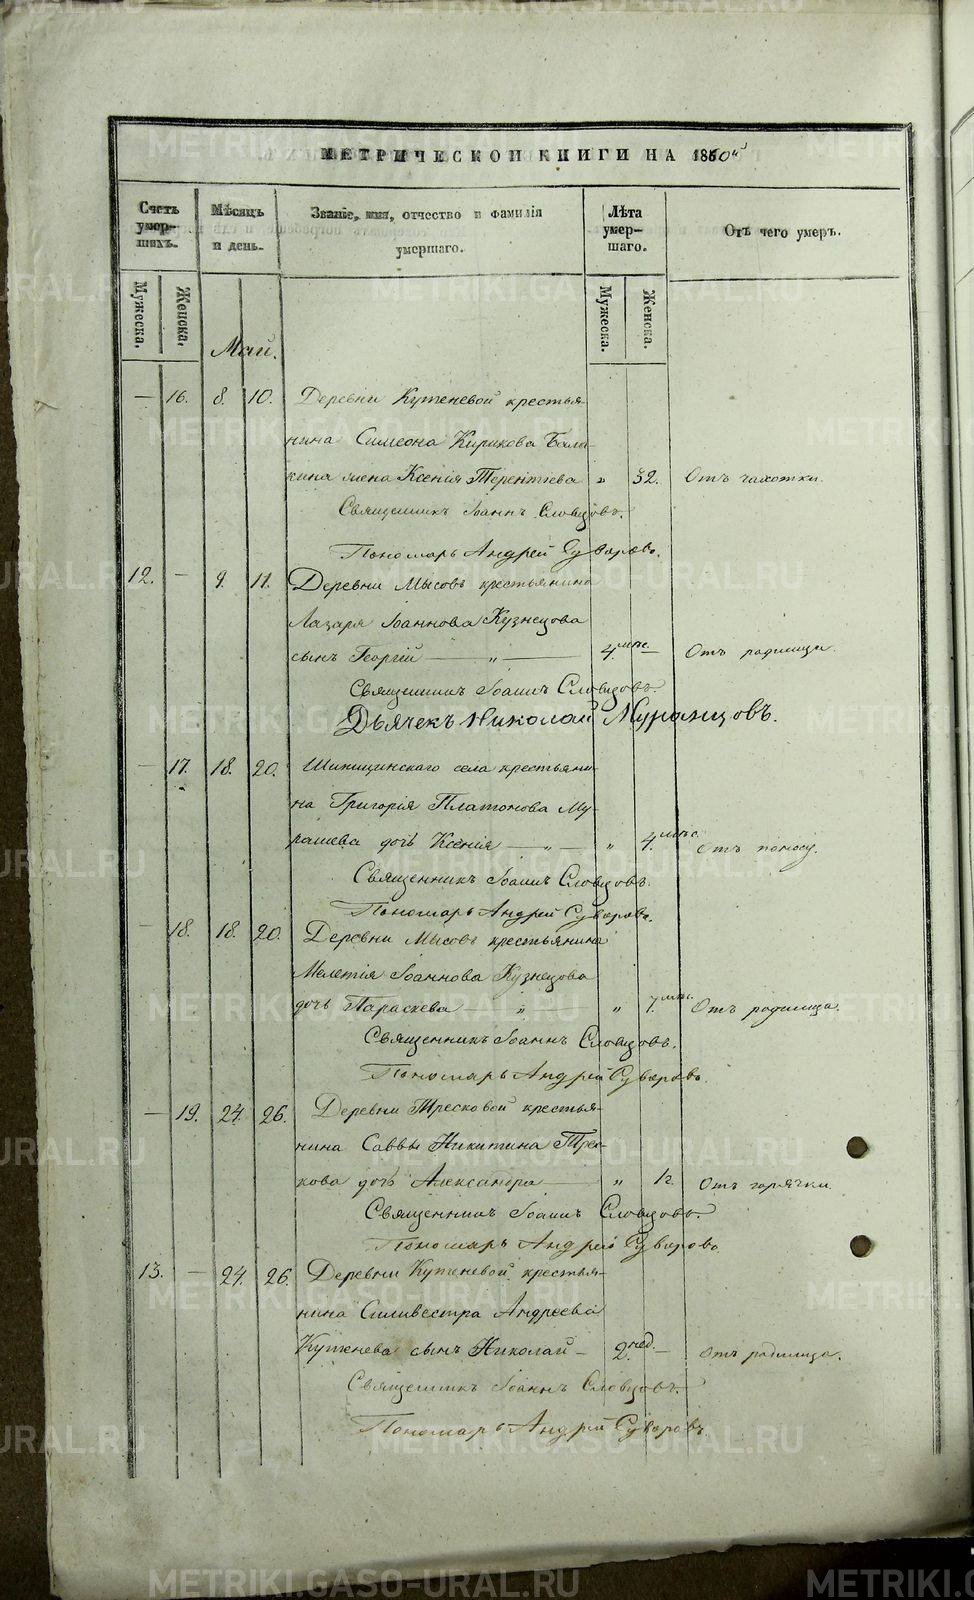 МЕТРИЧЕСКОЙ КНИГИ НА 1860й
Счетъ умер-шихъ.
Мѣсяцъ и день.
Званіе, имя, отчество и фамилія умершаго.
Лѣта умер-шаго.
Отъ чего умеръ.
Мужеска.
Женска.
Мужеска.
Женска.
Май.
— 16. 8. 10. Деревни Кутеневой крестья-
нина Симеона Кирикова Бала-
кина жена Ксенія Терентіева „ 32. Отъ чахотки.
Священникъ Іоаннъ Словцовъ.
Пономарь Андрей Суворовъ.
12. — 9. 11. Деревни Мысовъ крестьянина
Лазаря Іоаннова Кузнецова
сынъ Георгій — „ — 4. мѣс. — Отъ родимца.
Священникъ Іоаннъ Словцовъ.
Дьячекъ Николай Муранцовъ.
— 17. 18. 20. крестьяни-
на Григорія Платонова Му-
рашева дочь Ксенія — „ — „ 4. мѣс. Отъ поносу.
Священникъ Іоаннъ Словцовъ.
Пономарь Андрей Суворовъ.
— 18. 18. 20. Деревни Мысовъ крестьянина
Мелетія Іоаннова Кузнецова
дочь Параскева — „ — „ 7. мѣс. Отъ родимца.
Священникъ Іоаннъ Словцовъ.
Пономарь Андрей Суворовъ.
— 19. 24. 26. Деревни Тресковой крестья-
нина Саввы Никитина Трес-
кова дочь Александра — „ 1г. Отъ горячки.
Священникъ Іоаннъ Словцовъ.
Пономарь Андрей Суворовъ.
13. — 24. 26. Деревни Кутеневой крестья-
нина Силивестра Андреева
Кутенева сынъ Николай — 2. нед. — Отъ родимца.
Священникъ Іоаннъ Словцовъ.
Пономарь Андрей Суворовъ.
METRIKI.GASO-URAL.RU